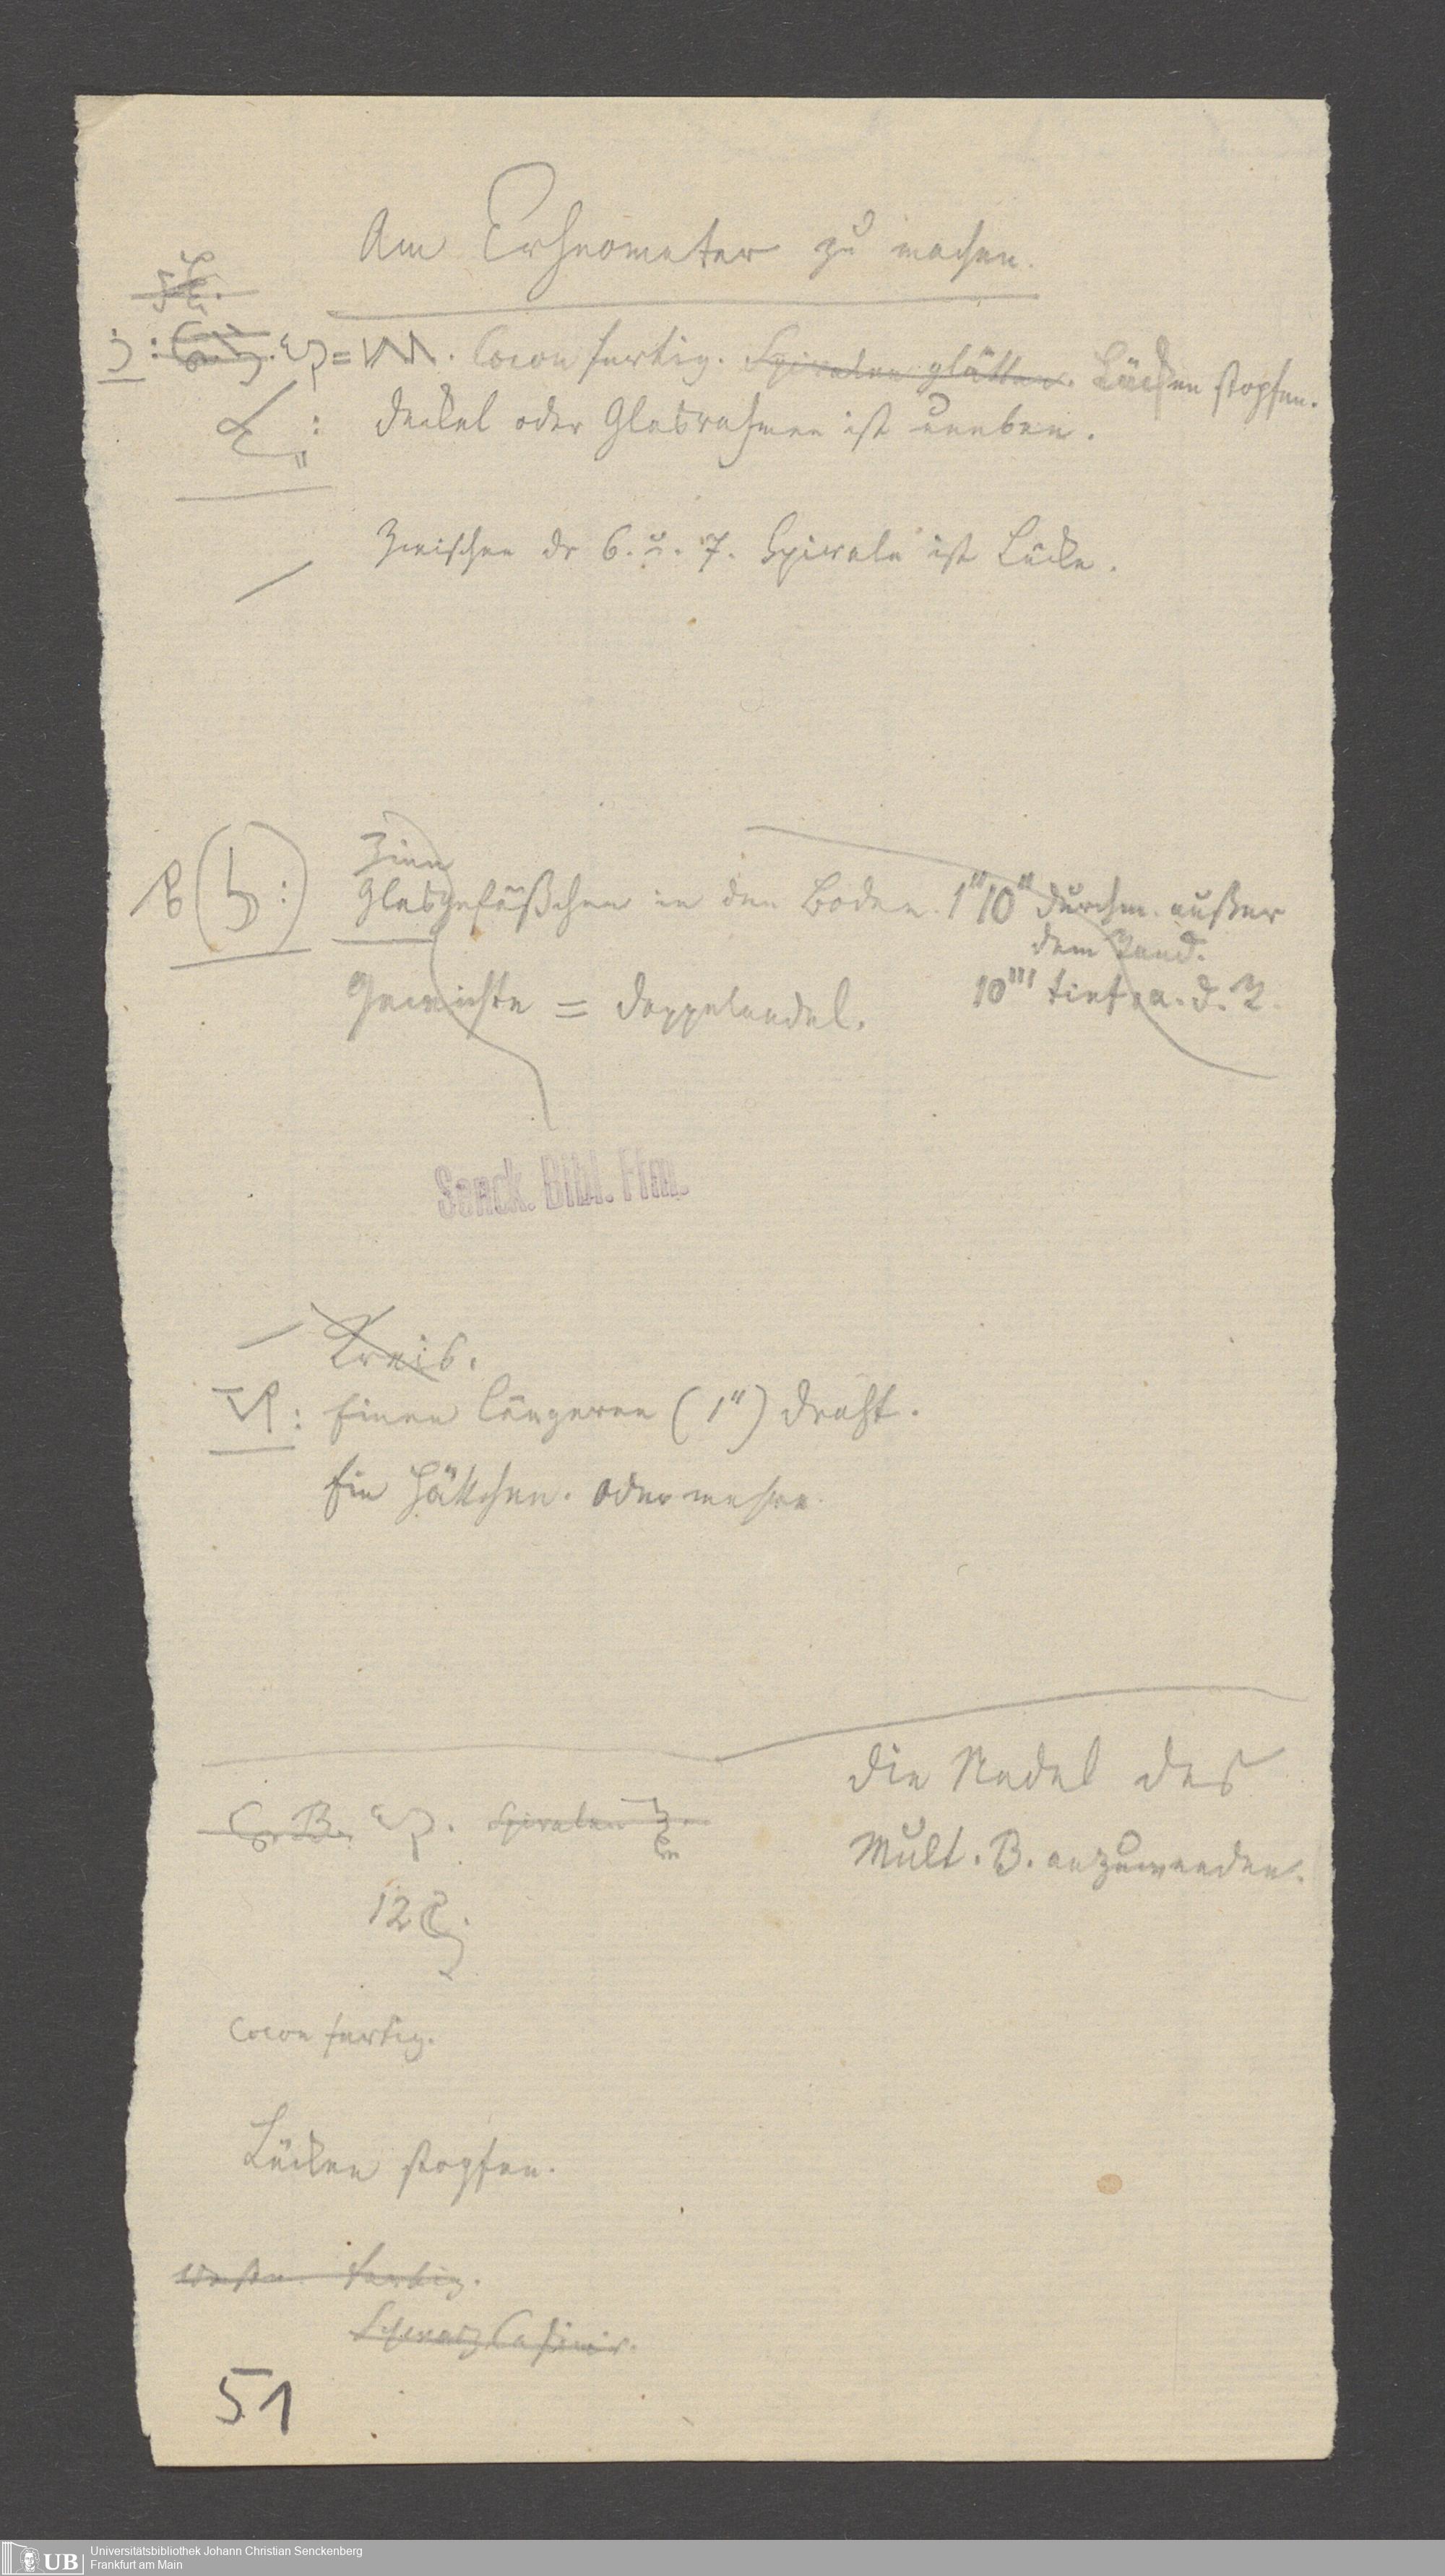 Am Erheometer zu machen.
Cocon fertig. Spiralen glätten. Lücken stopfen.
Deckel oder Glasrahmen ist uneben.
Zwischen dr 6. u. 7. Spirale ist Lücke.
Zinn
Glasgefäßchen in den Boden. 1'' 10''' Durchm. außer
dem Rand.
Gewichte = Doppelnadel. 10''' tief. a. d. R.
Senck. Bibl. Ffm.
Kreis.
Einen längeren (1'') Draht.
Ein Häkchen. oder mehre.
Die Nadel des
Spiralen
Mult. B. anzuwenden.
12
Cocon fertig.
Lücken stopfen.
fertig.
Schwarz Casimir.
51
UB Universitätsbibliothek Johann Christian Senckenberg
Frankfurt am Main